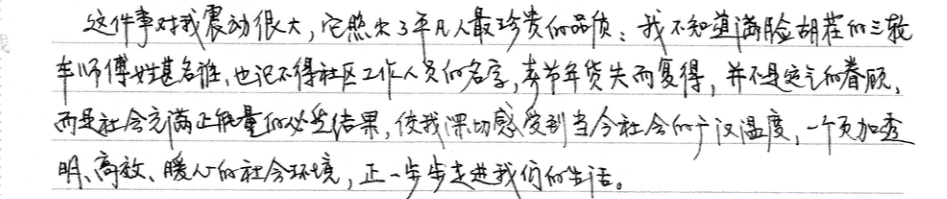 这件事对我震动很大，它照出了平凡人最珍贵的品质：我不知道满脸胡茬的三轮
车师傅姓甚名谁，也记不得社区工作人员的名字，春节年货失而复得，并不是运气的眷顾，
而是社会充满正能量的必然结果，使我深切感受到当今社会的广泛温度，一个更加透
明、高效、暖心的社会环境，正一步步走进我们的生活。